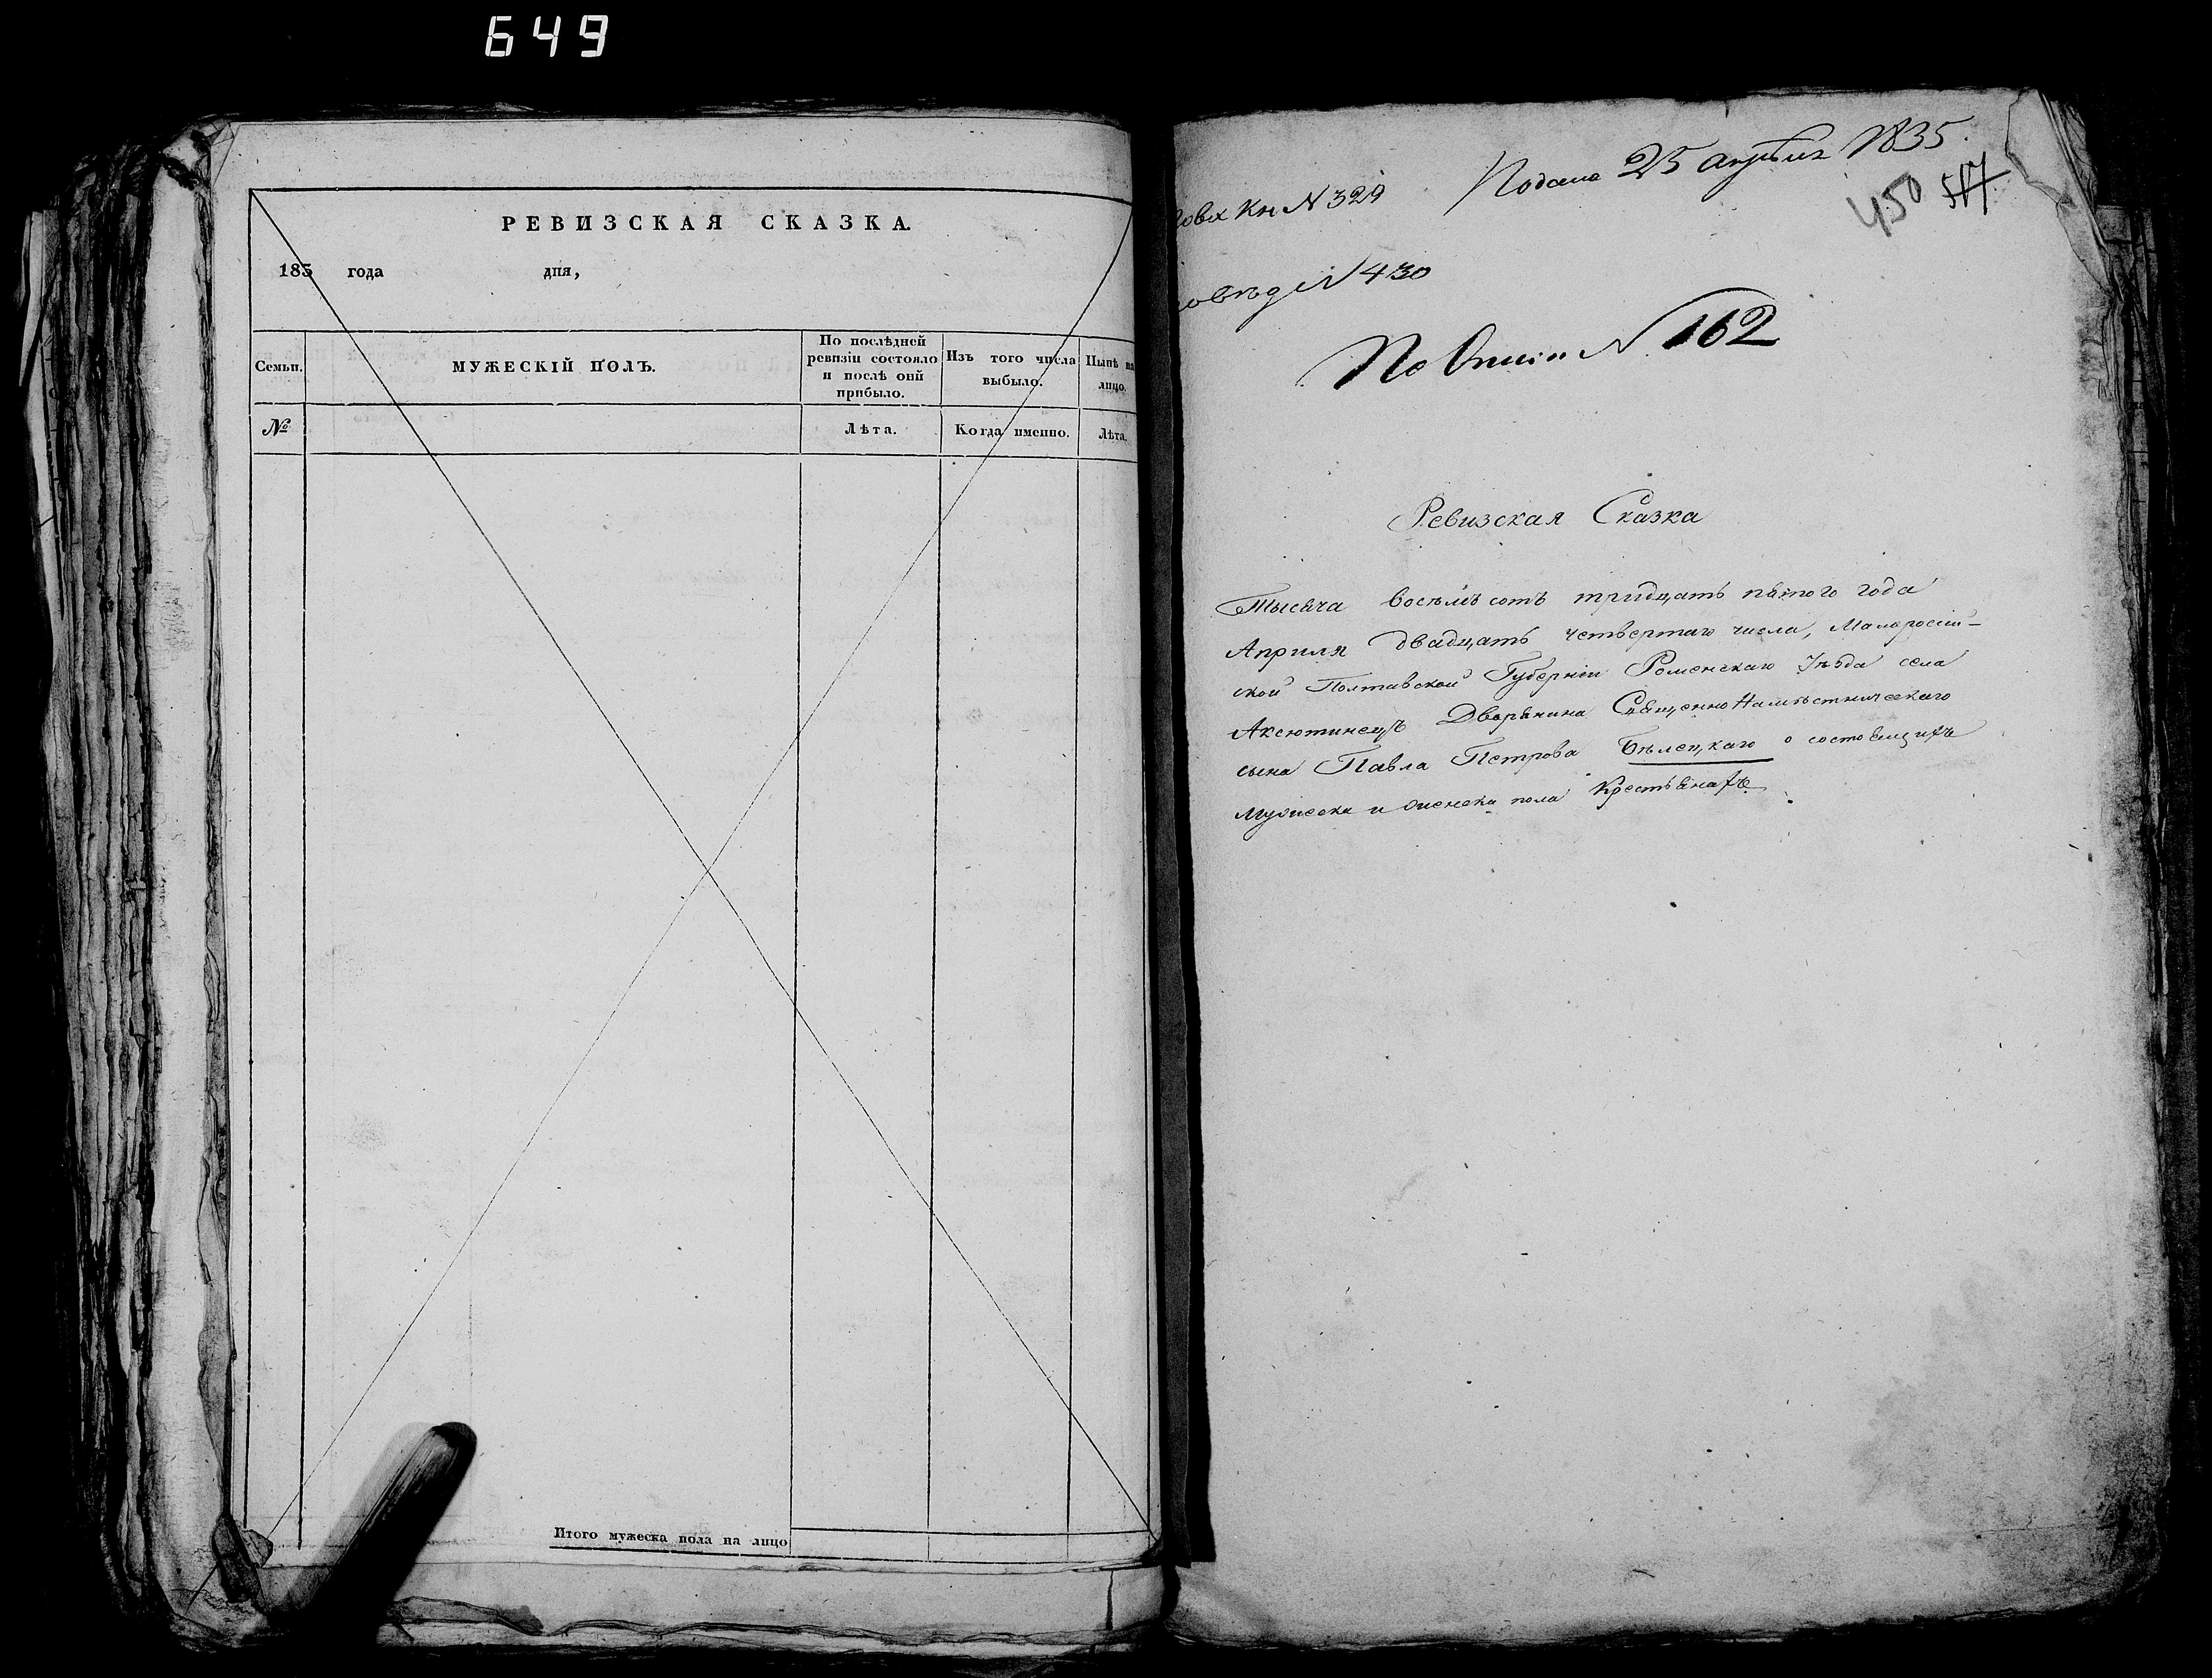 649
РЕВИЗСКАЯ СКАЗКА.
183 года дня,
Семьи.
МУЖЕСКІЙ ПОЛЪ.
По послѣдней ревизіи состояло и послѣ оній прибыло.
Изъ того числа выбыло.
Нынѣ на лицо.
№
Лѣта.
Когда именно.
Лѣта.
Итого мужеска пола на лицо
Подана 25 апрѣля 1835.
450 517
Кн N 329
N 430
По Описи N 162
Ревизская Сказка
Тысяча восѣмъ сотъ тридцать пятого года
Априля двадцать четвертаго числа, Малороссій-
ской Полтавской Губерніи Роменскаго Уѣзда села
Аксютинецъ Дворянина СвященноНамѣстническаго
сына Павла Петрова Бѣлецкаго о состоящихъ
мужеска и женска пола Крестьянахъ.